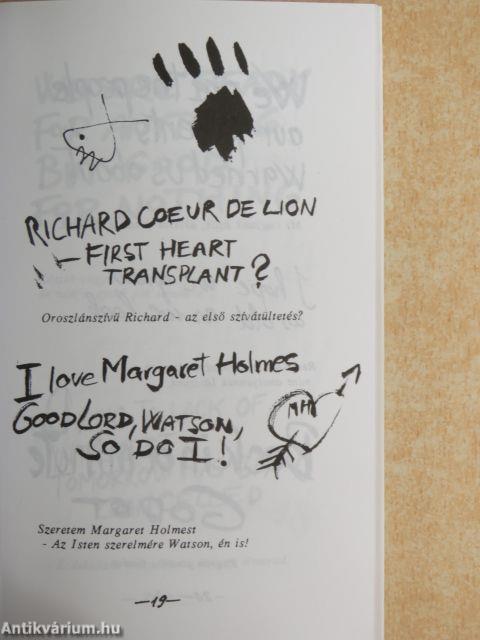 RICHARD COEUR DE LION
— FIRST HEART
TRANSPLANT?
Oroszlánszívü Richard - az első szívátültetés?
I love Margaret Holmes
GOOD LORD, WATSON,
SO DO I!
MH
Szeretem Margaret Holmest
- Az Isten szerelmére Watson, én is!
—19—
Antikvárium.hu